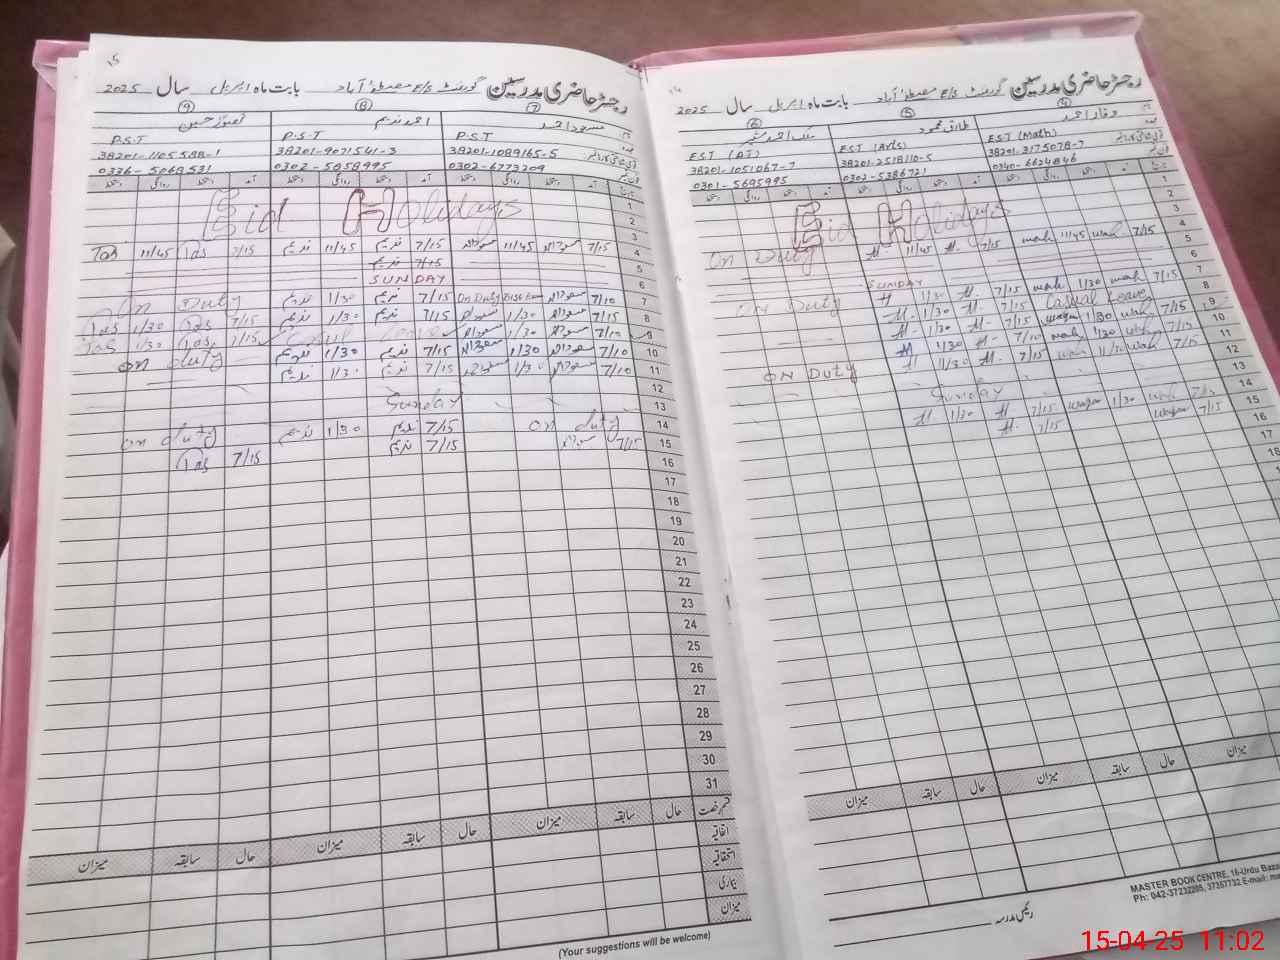 ۱۵
رجسٹر حاضری مدرسین گورنمنٹ E/S مصطفیٰ آباد بابت ماہ اپریل سال 2025
(9) (8) (7)
تصور حسین احمد ندیم مسعود احمد
P.S.T P.S.T P.S.T
38201-1105588-1 38201-9071541-3 38201-1089165-5
0336-5068531 0302-5858995 0302-6773209
دستخط روانگی دستخط آمد دستخط روانگی دستخط آمد دستخط روانگی دستخط آمد تاریخ
1
Eid Holidays 2
3
Tas 11/45 Tas 7/15 ندیم 11/45 ندیم 7/15 مسعود احمد 11/45 مسعود احمد 7/15 4
ندیم 7/15 5
SUNDAY 6
On Duty ندیم 1/30 ندیم 7/15 On Duty مسعود احمد 7/10 7
Tas 1/30 Tas 7/15 ندیم 1/30 ندیم 7/15 مسعود احمد 1/30 مسعود احمد 7/10 8
Tas 1/30 Tas 7/15 مسعود احمد 1/30 مسعود احمد 7/10 9
on duty ندیم 1/30 ندیم 7/15 مسعود احمد 1/30 مسعود احمد 7/10 10
ندیم 1/30 ندیم 7/15 مسعود احمد 1/30 مسعود احمد 7/10 11
12
Sunday 13
on duty ندیم 1/30 ندیم 7/15 on duty 14
Tas 7/15 ندیم 7/15 مسعود احمد 7/15 15
16
17
18
19
20
21
22
23
24
25
26
27
28
29
30
31
میزان سابقہ حال میزان سابقہ حال میزان سابقہ حال قسم رخصت
اتفاقیہ
استحقاقیہ
بیماری
میزان
(Your suggestions will be welcome)
۱۴
رجسٹر حاضری مدرسین گورنمنٹ E/S مصطفیٰ آباد بابت ماہ اپریل سال 2025
(6) (5) (4)
طارق محمود وقار احمد
EST (AT) EST (Arts) EST (Math)
38201-1051067-7 38201-2518110-5 38201-3175078-7
0301-5695995 0302-5386721 0340-6624846
دستخط روانگی دستخط آمد دستخط روانگی دستخط آمد دستخط روانگی دستخط آمد تاریخ
1
2
Eid Holidays 3
On Duty H. 11/45 H. 7/15 wah 11/45 wah 7/15 4
5
SUNDAY 6
ON Duty H 1/30 H. 7/15 wah 1/30 wah 7/15 7
H. 1/30 H. 7/15 Casual Leave 8
H. 1/30 H. 7/15 waqar 1/30 wah 7/15 9
H 1/30 H. 7/10 wah 1/30 wah 7/15 10
ON Duty H 11/30 H. 7/15 wah 11/30 wah 7/15 11
12
Sunday 13
H. 1/30 H. 7/15 waqar 1/30 wah 7/15 14
H. 7/15 waqar 7/15 15
16
17
18
میزان سابقہ حال میزان سابقہ حال میزان
رئیس مدرسہ
MASTER BOOK CENTRE, 16-Urdu Baza
Ph: 042-37232205, 37357732 E-mail: ma
15-04-25 11:02